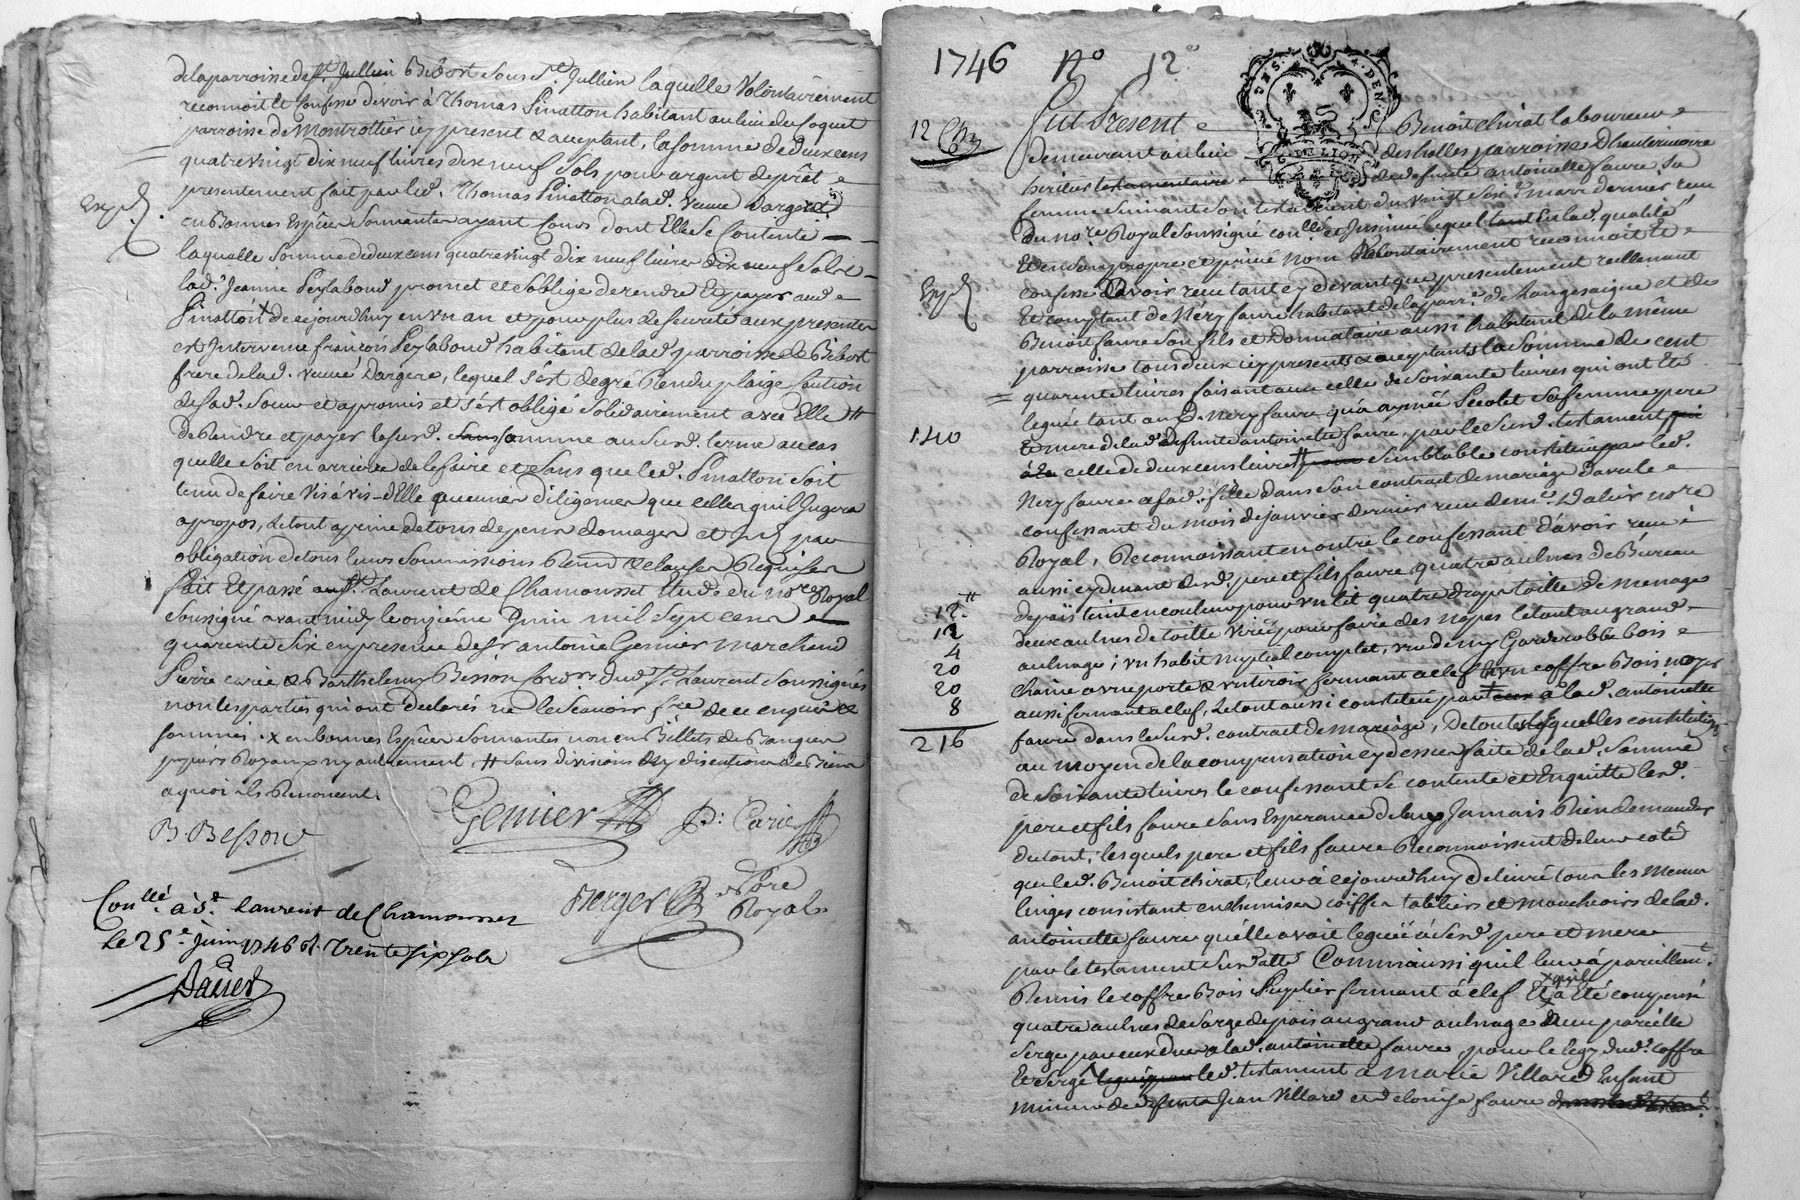 delaparroisse de St. Jullien Bibost sous St. Jullien laquelle Volontairement
reconnoit et Confesse devoir à Thomas Pinatton habitant au lieu du Coquet
parroisse de Montrottier icy present & aceptant, la somme de deux cens
quatre vingt dix neuf livres dix neuf sols pour argent de prêt
presentement fait par led. Thomas Pinatton a lad. veuve Dargere
Exp.d.
en Bonnes Espèces Sonnantes ayant Cours dont Elle se Contente
laquelle somme de deux cens quatre vingt dix neuf livres dix neuf sols
lad. Jeanne Peylaboud promet et s'oblige de rendre Et payer aud.
Pinatton de cejourdhuy en un an et pour plus de seureté aux presentes
est Intervenu françois Peylaboud habitant de lad. parroisse de Bibost
frere de lad. veuve Dargere, lequel s'est de gré Rendu plaige Caution
de lad. Soeur et a promis et s'est obligé solidairement avec Elle #
de Rendre et payer lasusd. somme au susd. terme au cas
quelle soit en arriere de le faire et sans que led. Pinatton soit
tenu de faire vis à vis d'Elle aucunes diligences que celles quil Jugera
apropos, le tout a peine de tous depens domages et par
obligation de tous leurs Soumissions Renon & clauses Requises
fait Et passé au St. Laurent de Chamousset Etude du no.re Royal
soussigné avant midy le onziéme Juin mil sept cens
quarente six en presence de Sr antoine Genier marchand
Pierre carie & Barthelemy Besson dud. St. Laurent soussignés
non les parties qui ont declarés ne le sçavoir fre de ce enquis &
sommés. x en bonnes Espèces sonnantes non en Billets de Banque
papiers Royaux ny autrement, # sans division ny discution de Biens
a quoi ils Renoncent.
B. Besson
Genier
P: Carie
Berger
no.re
Royal
Con.llé à St. laurent de Chamousset
Le 25e. Juin 1746 R. Trente six sols
Dalier
1746 No 12e
GEN. DE LION
12
Fut Present Benoît chirat laboureur
demeurant au lieu des halles parroisse D'hauterivoire
heritier testamentaire de defunte antoinette faure sa
femme suivant son testament du vingt Six mars dernier receu
Du no.re Royal soussigné con.llé et Insinué lequel tant En lad. qualité
Et en son propre et privé nom Volontairement reconnoit et
Exp.d.
confesse d'avoir receu tant cy devant que presentement reellement
Et comptant de Nery faure habitant de la parr. de Longesaigne et de
Benoît faure son fils et Donnataire aussi habitant de la même
parroisse tous deux icy presents & aceptants la somme de cent
quarente livres faisant avec celle de soixante livres qui ont Eté
leguée tant aud. Nery faure qu'a aymée Pecolet sa femme pere
140
et mere de lad. defunte antoinette faure, par le susd. testament
celle de deux cens livres # Semblable constituée par led.
Nery faure a sad. fille dans son contrat de mariage d'avec le
confessant du mois de Janvier dernier receu de me. Dalier no.re
Royal, Reconnoissant en outre le confessant d'avoir receu
aussi cy devant desd. pere et fils faure quatre aulnes de Bureau
12#
de païs teint en couleur pour un lit quatre draps toille de menage
12
deux aulnes de toille Virée pour faire des napes le tout au grand
4
aulnage; un habit nuptial complet, une demy Garderobbe bois
20
chaine a une porte & un tiroir fermant a clef & un coffre Bois noyer
20
8
aussi fermant a clef, le tout aussi constitué a lad. antoinette
216
faure dans le susd. contract de mariage, De toutes lesquelles constitutions
au moyen de la compensation cy dessus faite de lad. somme
de soixante livres le confessant se contente et Enquitte lesd.
pere et fils faure sans Esperance de leurs Jamais Rien demander
du tout; lesquels pere et fils faure Reconnoissent de leur coté
que led. Benoit chirat, leur à cejourdhuy delivré tous les Menus
linges consistant en chemises coiffes tabliers et mouchoirs de lad.
antoinette faure qu'elle avoit legués à sesd. pere et mere
par le testament susdatté Comm'aussi quil leur à pareillem.t
Remis le coffre Bois Puplier fermant à clef Et quil à Eté compensé
quatre aulnes de Sarge de païs au grand aulnages d'une pareille
Serge par eux due a lad. antoinette faure, pour le legs dud. coffre
Et Serge led. testament a marie Villard Enfant
mineure de defunts Jean Villard et d'eloise faure